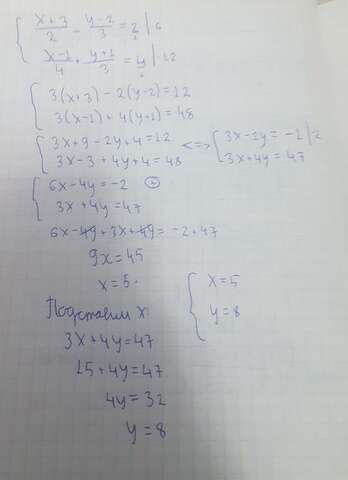 { (x+3)/2 - (y-2)/3 = 2 | 6
(x-1)/4 + (y+1)/3 = 4 | 12
{ 3(x+3) - 2(y-2) = 12
3(x-1) + 4(y+1) = 48
{ 3x+9-2y+4=12 <=> { 3x-2y = -1 |·2
3x-3+4y+4=48 3x+4y = 47
{ 6x-4y = -2 (+)
3x+4y=47
6x-4y+3x+4y = -2+47
9x=45
x=5.
Подставим x:
3x+4y=47
15+4y=47
4y=32
y=8
{ x=5
y=8